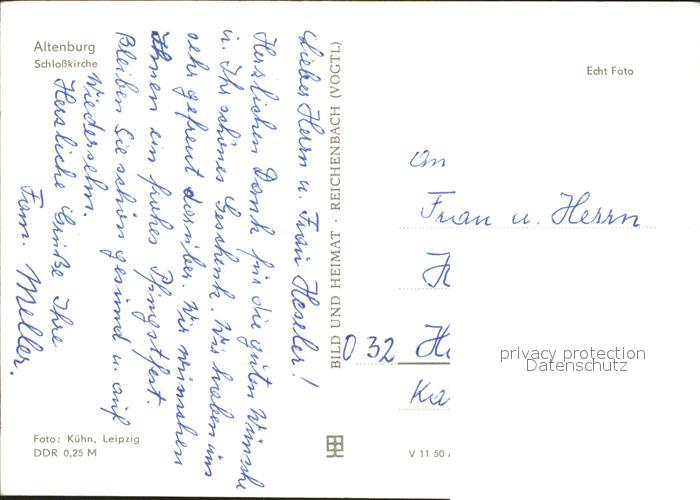 Altenburg
Schloßkirche
Lieber Herrn u. Frau Heseler!
Herzlichen Dank für die guten Wünsche
u. Ihr schönes Geschenk. Wir haben uns
sehr gefreut darüber. Wir wünschen
Ihnen ein frohes Pfingstfest.
Bleiben Sie schön gesund u. auf
Wiedersehn.
Herzliche Grüße Ihre
Fam. Meller.
Foto: Kühn, Leipzig
DDR 0,25 M
BILD UND HEIMAT · REICHENBACH (VOGTL)
Echt Foto
An
Frau u. Herrn
H
032 He
Ka
V 11 50
privacy protection
Datenschutz